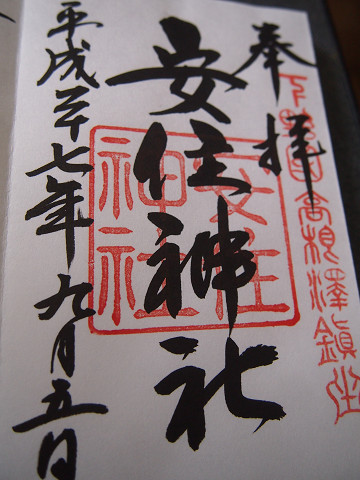 奉拝
下野国高根澤鎮座
安住神社
安住神社
平成二十七年九月五日